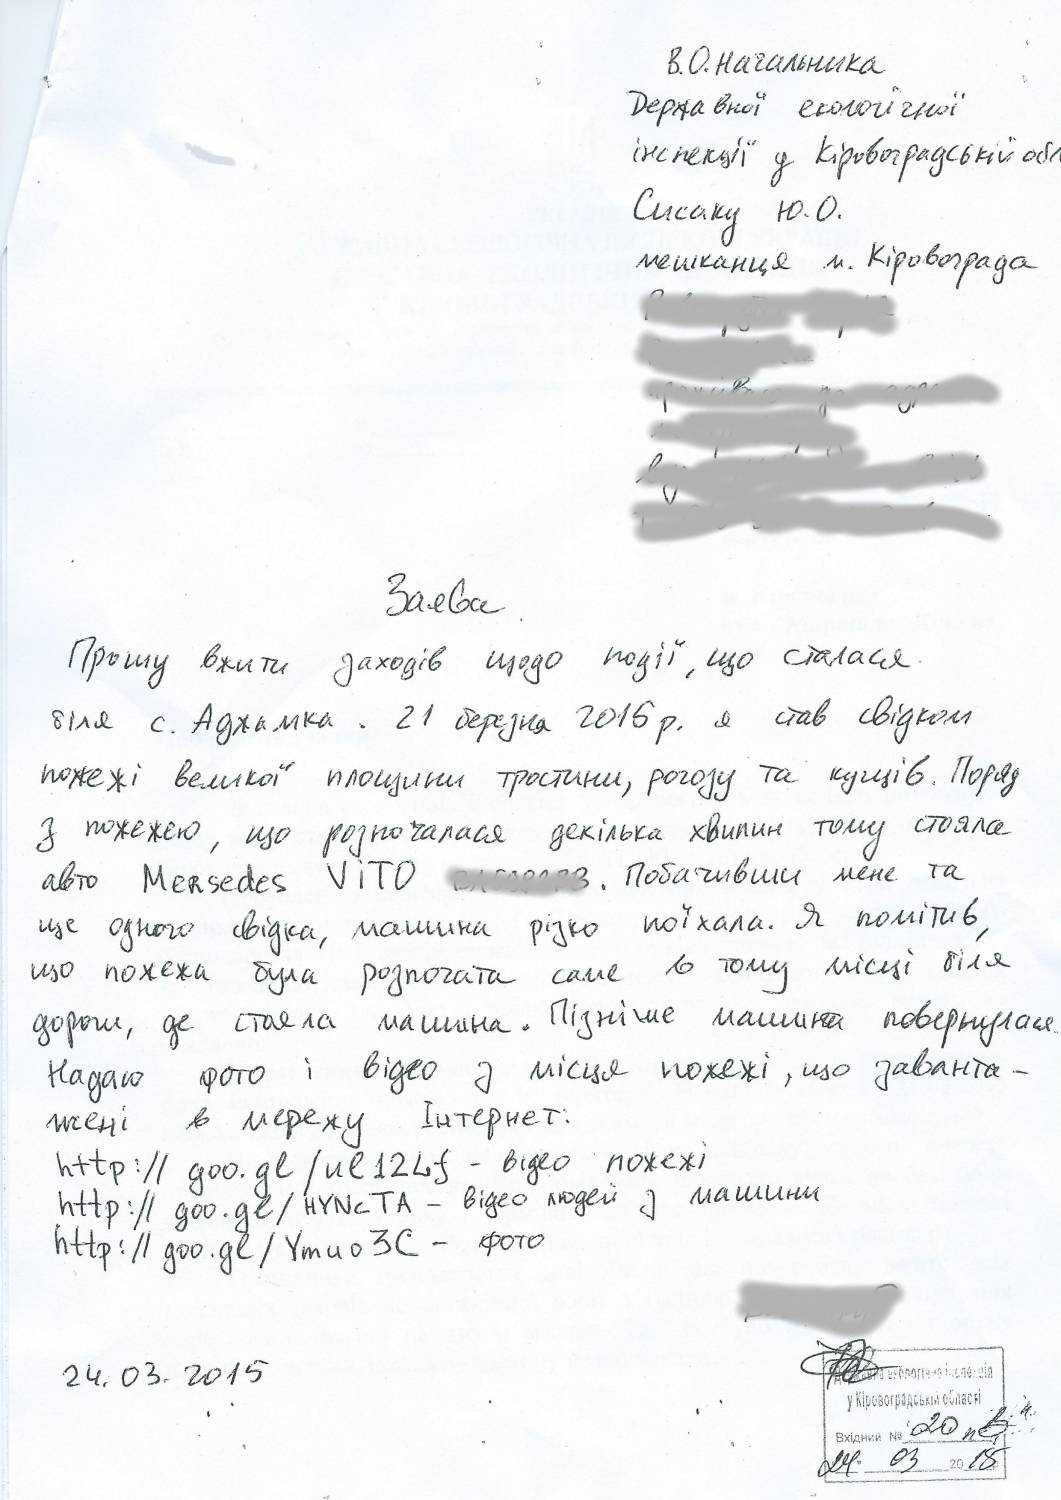 В.О.Начальника
Державної екологічної
інспекції у Кіровоградській обл
Сисаку Ю.О.
мешканця м. Кіровограда
Заява
Прошу вжити заходів щодо події, що сталася
біля с. Аджамка. 21 березня 2015р. я став свідком
пожежі великої площини тростини, рогозу та кущів. Поряд
з пожежею, що розпочалася декілька хвилин тому стояла
авто Mersedes ViTO . Побачивши мене та
ще одного свідка, машина різко поїхала. Я помітив,
що пожежа була розпочата саме в тому місці біля
дороги, де стояла машина. Пізніше машина повернулася.
Надаю фото і відео з місця пожежі, що заванта-
жені в мережу Інтернет:
http://goo.gl/ul12Lf - відео пожежі
http://goo.gl/HYNcTA - відео людей з машини
http://goo.gl/Ymuo3C - фото
24.03.2015
Державна екологічна інспекція
у Кіровоградській області
Вхідний № 20
24. 03 2015